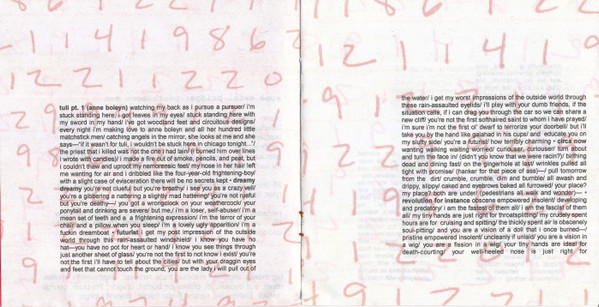 1 1 4 1 9 8 6
1 2 2 1 1 2 2 0
tuli pt. 1 (anne boleyn) watching my back as i pursue a pursuer/ i'm
stuck standing here. i got leaves in my eyes/ stuck standing here with
my sword in my hand/ i've got woodland feet and circuitous designs/
every night i'm making love to anne boleyn and all her hundred little
matchstick men/ catching angels in the mirror, she looks at me and she
says—"if it wasn't for tuli, i wouldn't be stuck here in chicago tonight..."/
the priest that i killed was not the one i had lain/ (i burned him over lines
i wrote with candles)/ i made a fire out of smoke, pencils, and peat, but
i couldn't thaw and uproot my remorseless feet/ my nose in her hair left
me wanting for air and i dribbled like the four-year-old frightening-boy/
with a slight case of evaceration there will be no secrets kept • dreamy
dreamy you're not clueful but you're breathy/ i see you as a crazy veil/
you're a gibbering a rathering a slightly mad hattering/ you're not rueful
but you're deathly— you got a wrongclock on your weathercock/ your
ponytail and drinking are several but me./ i'm a loser, self-abuser/ i'm a
mean set of teeth and a a frightening expression/ i'm the terror of your
chair and a pillow when you sleep/ i'm a lovely ugly apparition/ i'm a
fuckin dreamboat • futurist i get my post impression of the outside
world through this rainassaulted windshield/ i know you have no
hat—you have no pot for heart or hand/ i know you see things through
just another sheet of glass/ you're not the first to not know i exist/ you're
not the first i'll have to tell about the cities/ but with your draggin eyes
and feet that cannot touch the ground, you are the lady i will pull out of
1 2 1 1 4 1 9
the water/ i get my worst impressions of the outside world through
these rain-assaulted eyelids/ i'll play with your dumb friends, if the
situation calls, if i can drag you through the car so we can share a
new cliff/ you're not the first softhaired saint to whom i have prayed/
i'm sure i'm not the first of' dwarf to terrorize your doorbell/ but i'll
take you by the hand like galahad in his cups/ and educate you on
my slutty side/ you're a futurist/ how terribly charming • circa now
wanting walking waiting worried/ curiouser, curiouser/ turn about
and turn the face in/ (didn't you know that we were racin'?)/ birthing
dead and dining fast/ on the gingerhole at last/ wrinkles pulled all
tight with promise/ (hanker for that piece of ass)—/ pull tomorrow
from the dirt/ crumble, crumble, dim and bumble/ all awash and
drippy, slippy/ caked and eyebrows baked all furrowed/ your place?
my place? both are under! (pedestrians all walk and wonder)— •
revolution for instance obscene empowered insolent/ developing
and predatory/ i am the fastest of them all/ i am the fascist of them
all/ my tiny hands are just right for throatspitting/ my crudely spent
hours are for cruising and spitting/ the thickly spent air is obscenely
soul-pitting/ and you are a vision of a doll that i once burned—/
pristine empowered insolent/ uncleanly if unlaid/ you are a vision in
a wig/ you are a fission in a wig/ your tiny hands are ideal for
death-courting/ your well-heeled nose is just right for